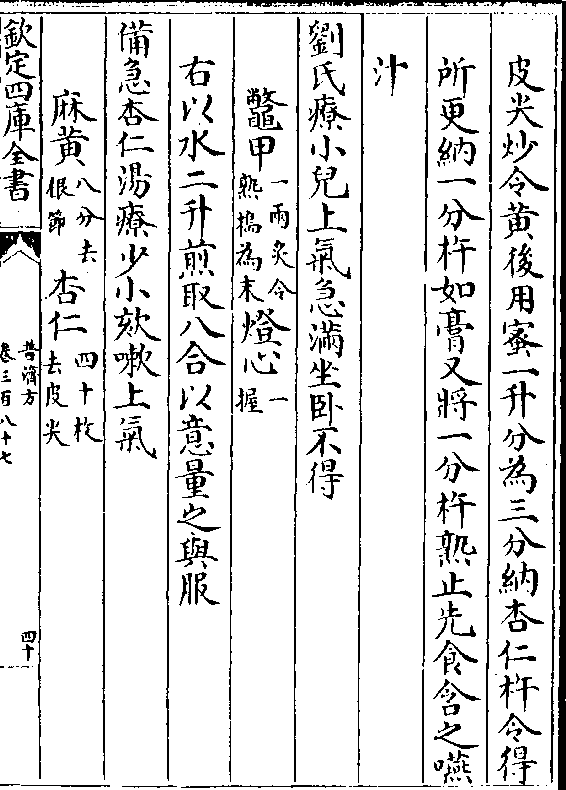 皮尖炒令黄後用蜜一升分為三分納杏仁杵令得
所更納一分杵如膏又將一分杵熟止先食含之嚥
汁
劉氏療小兒上氣急滿坐卧不得
鼈甲一兩炙令熟搗為末燈心一握
右以水二升煎取八合以意量之與服
備急杏仁湯療少小欬嗽上氣
麻黄八分去根節杏仁四十枚去皮尖
欽定四庫全書
普濟方
卷三百八十七
四十